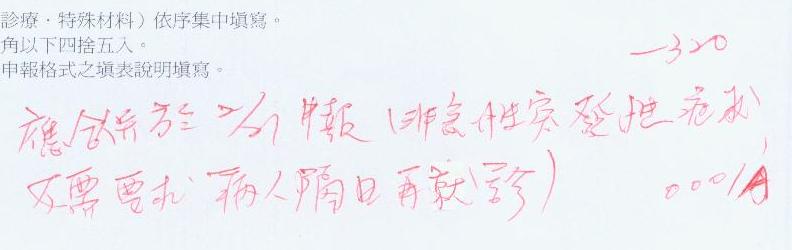 診療．特殊材料）依序集中填寫。
角以下四捨五入。
申報格式之填表說明填寫。
—320
應合併於 2/21 申報 (非急性突發性症狀
不需要求 病人隔日再就診)
0001A